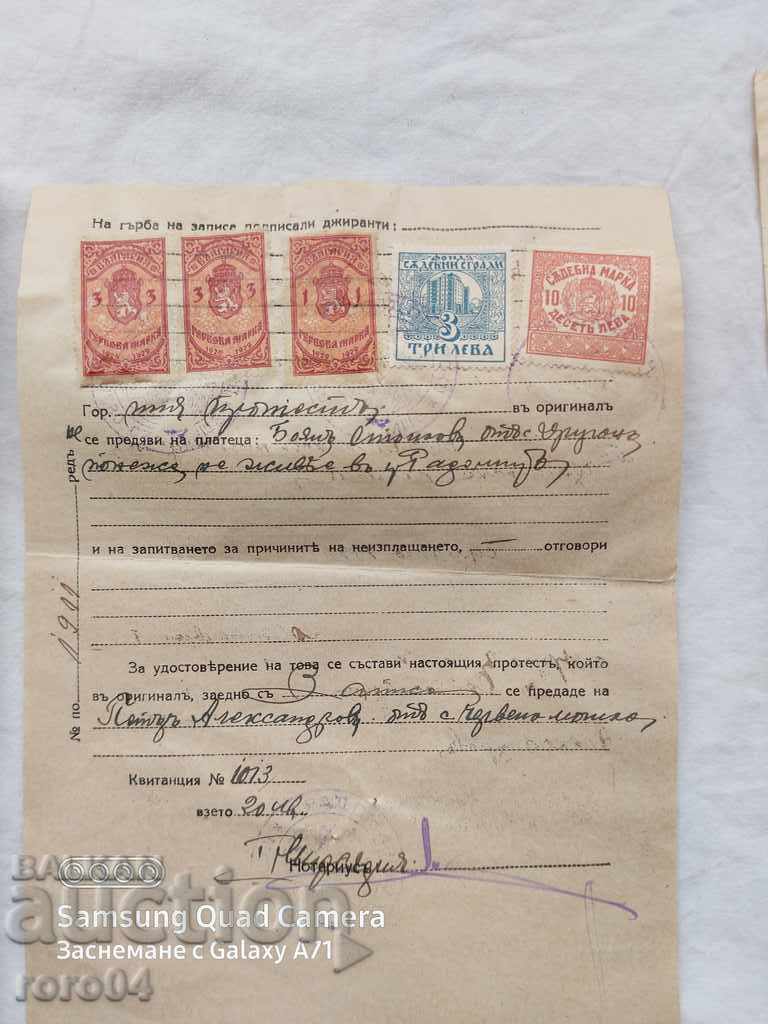 На гърба на записа подписали джиранти:
БЪЛГАРИЯ БЪЛГАРИЯ БЪЛГАРИЯ ФОНДЪ СѪДЕБНИ СГРАДИ СѪДЕБНА МАРКА
3 3 3 3 1 1 3 10 10
ГЕРБОВА МАРКА ГЕРБОВА МАРКА ГЕРБОВА МАРКА ТРИ ЛЕВА ДЕСЕТЬ ЛЕВА
1928 1929 1928 1929 1928 1929
Гор. въ оригиналъ
не се предяви на платеца: Боянъ Стоиловъ отъ с.
понеже не живѣе въ Радомиръ
и на запитването за причинитѣ на неизплащането, отговори
№ по редъ 1911
За удостовѣрение на това се състави настоящия протестъ, който
въ оригиналъ, заедно съ записа се предаде на
Петъръ Александровъ отъ с.
Квитанция № 1013
взето 20 лв.
Нотариусъ
БАЛКАН
auction
Samsung Quad Camera
Заснемане с Galaxy A71
roro04